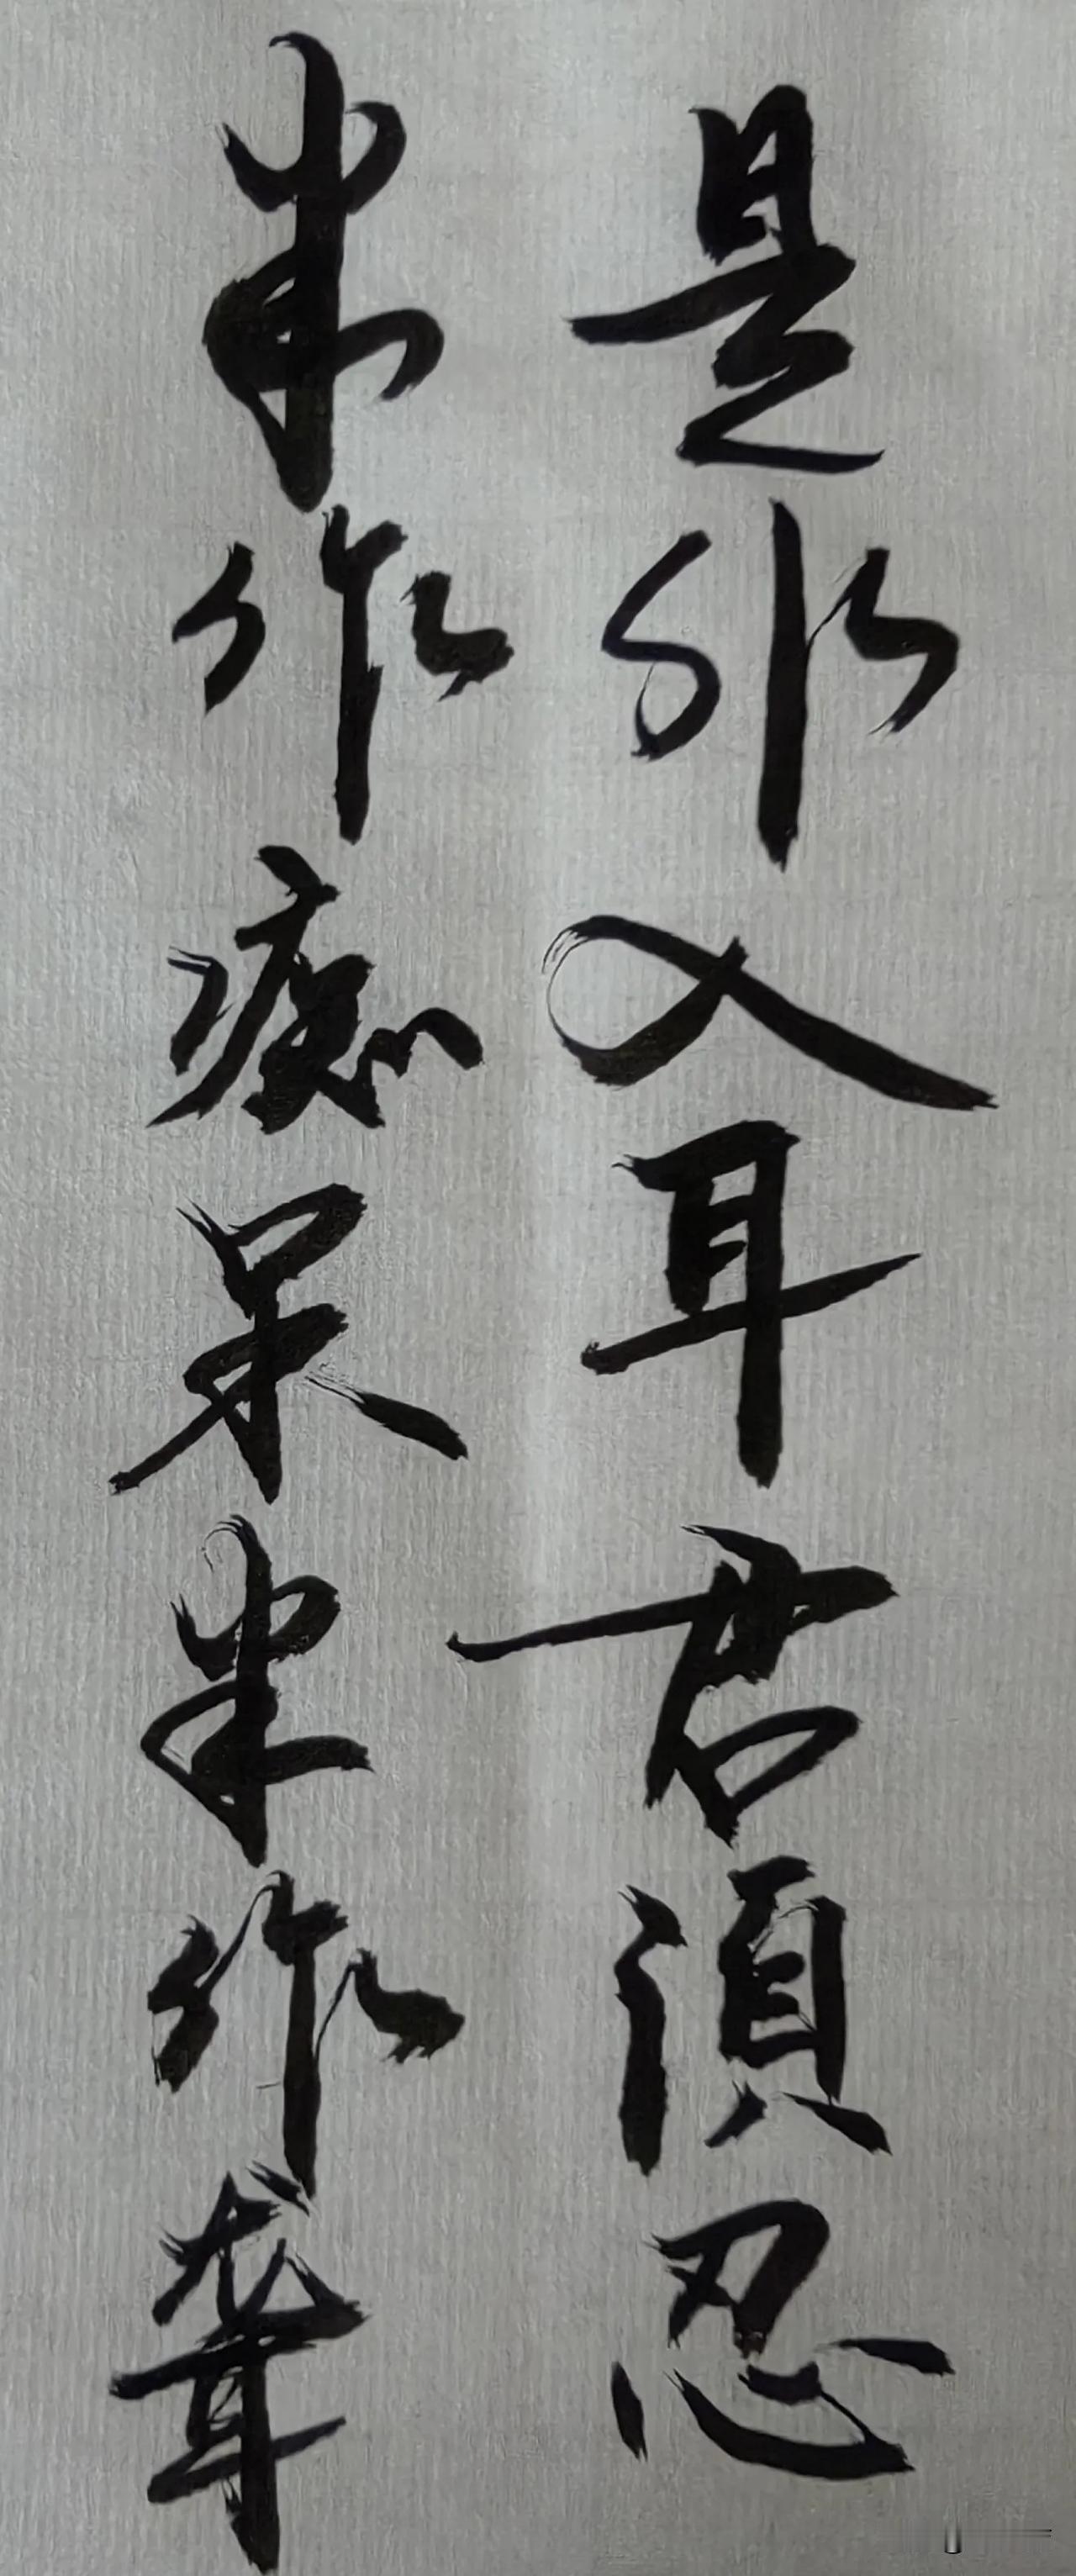 是非入耳君須忍
半作痴呆半作聋